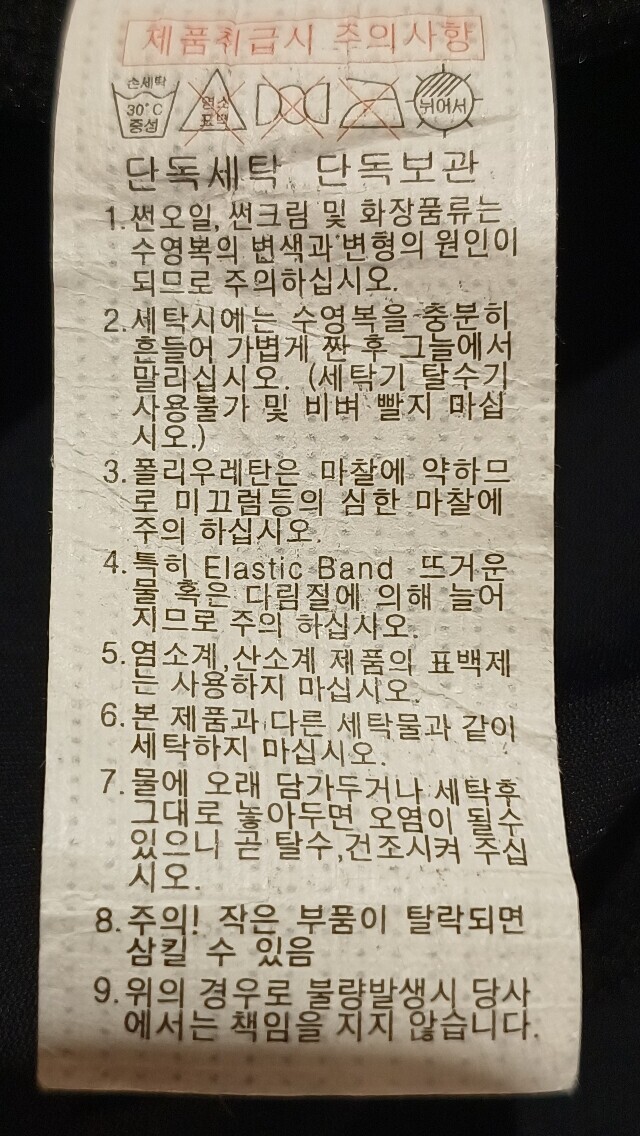 제품취급시 주의사항
손세탁
30°C
중성
염소
표백
뉘어서
단독세탁 단독보관
1.썬오일, 썬크림 및 화장품류는
수영복의 변색과 변형의 원인이
되므로 주의하십시오.
2.세탁시에는 수영복을 충분히
흔들어 가볍게 짠 후 그늘에서
말리십시오. (세탁기 탈수기
사용불가 및 비벼 빨지 마십
시오.)
3.폴리우레탄은 마찰에 약하므
로 미끄럼등의 심한 마찰에
주의 하십시오.
4.특히 Elastic Band 뜨거운
물 혹은 다림질에 의해 늘어
지므로 주의 하십사오.
5.염소계,산소계 제품의 표백제
는 사용하지 마십시오.
6.본 제품과 다른 세탁물과 같이
세탁하지 마십시오.
7.물에 오래 담가두거나 세탁후
그대로 놓아두면 오염이 될수
있으니 곧 탈수,건조시켜 주십
시오.
8.주의! 작은 부품이 탈락되면
삼킬 수 있음
9.위의 경우로 불량발생시 당사
에서는 책임을 지지 않습니다.